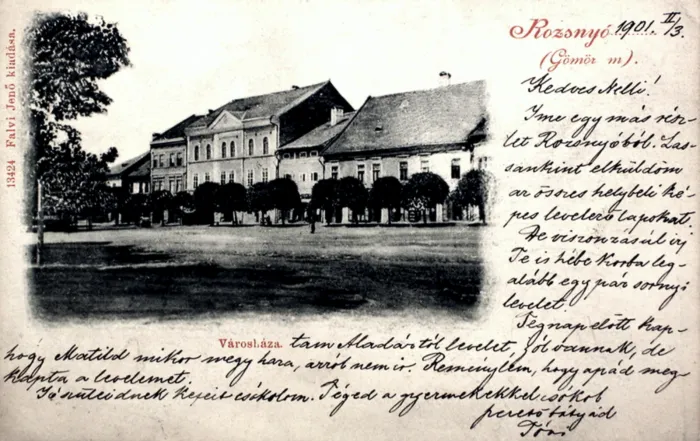 13424 Falvi Jenő kiadása.
Rozsnyó 1901. II/3.
(Gömör m).
Kedves Nelli!
Ime egy más rész-
let Rozsnyóból. Las-
sankint elküldöm
az összes helybeli ké-
pes levelező lapokat.
De viszonzásúl írj
Te is hébe korba leg-
alább egy pár sornyi
levelet.
Tegnap előtt kap-
Városháza.
tam Aladártól levelet, jól vannak, de
hogy Matild mikor megy haza, arról nem ír. Reménylem, hogy apád meg-
kapta a levelemet.
kezeit csókolom. Téged a gyermekekkel csókol
szerető bátyád